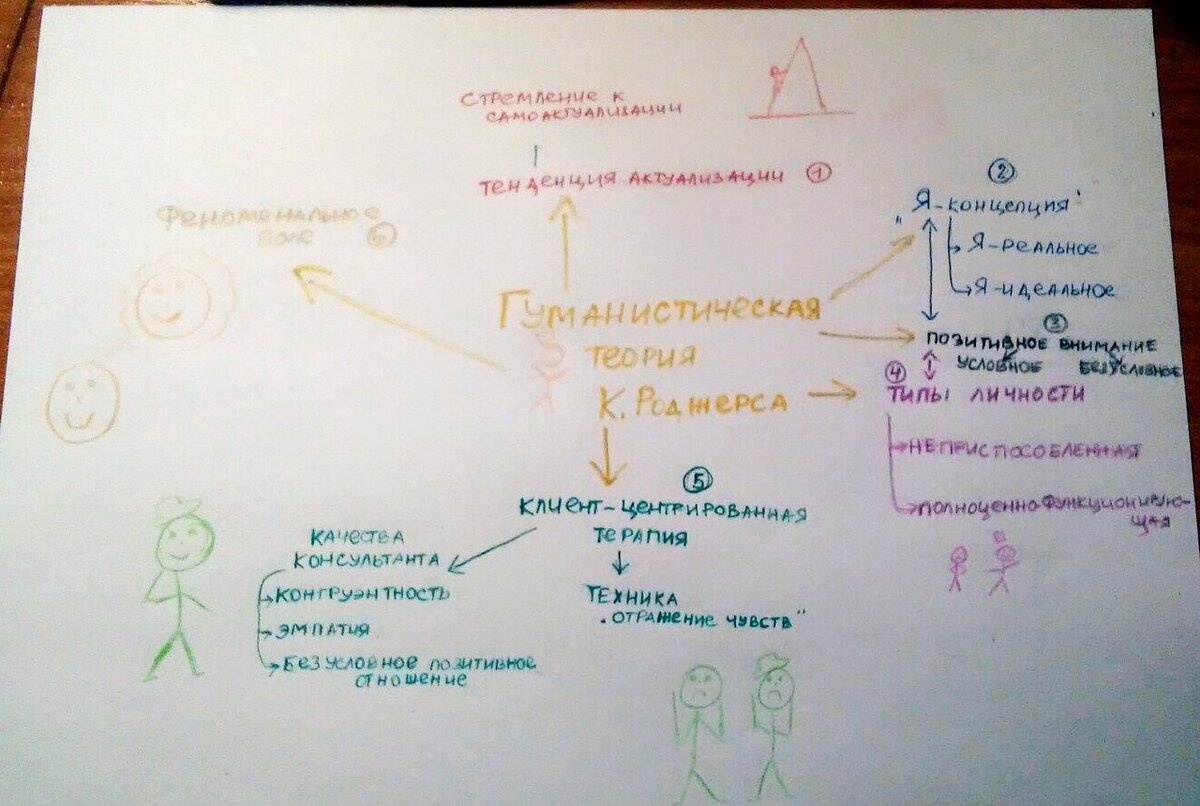 СТРЕМЛЕНИЕ К
САМОАКТУАЛИЗАЦИИ
ТЕНДЕНЦИЯ АКТУАЛИЗАЦИИ 1
2
"Я-КОНЦЕПЦИЯ"
Я-РЕАЛЬНОЕ
Я-ИДЕАЛЬНОЕ
3
ПОЗИТИВНОЕ ВНИМАНИЕ
УСЛОВНОЕ БЕЗУСЛОВНОЕ
4
ТИПЫ ЛИЧНОСТИ
НЕПРИСПОСОБЛЕННАЯ
ПОЛНОЦЕННО ФУНКЦИОНИРУЮ-
ЩАЯ
ФЕНОМЕНАЛЬНОЕ
ПОЛЕ 6
ГУМАНИСТИЧЕСКАЯ
ТЕОРИЯ
К. РОДЖЕРСА
5
КЛИЕНТ-ЦЕНТРИРОВАННАЯ
ТЕРАПИЯ
ТЕХНИКА
"ОТРАЖЕНИЕ ЧУВСТВ"
КАЧЕСТВА
КОНСУЛЬТАНТА
КОНГРУЭНТНОСТЬ
ЭМПАТИЯ
БЕЗУСЛОВНОЕ ПОЗИТИВНОЕ
ОТНОШЕНИЕ